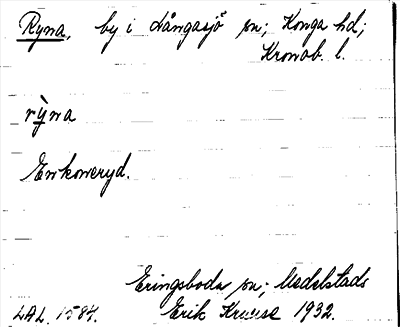 Ryna, by i Långasjö sn; Konga hd;
Kronob. l.
rỳna
Enkoneryd.
Eringsboda sn; Medelstads
LAL. 1584. Erik Kruuse 1932.